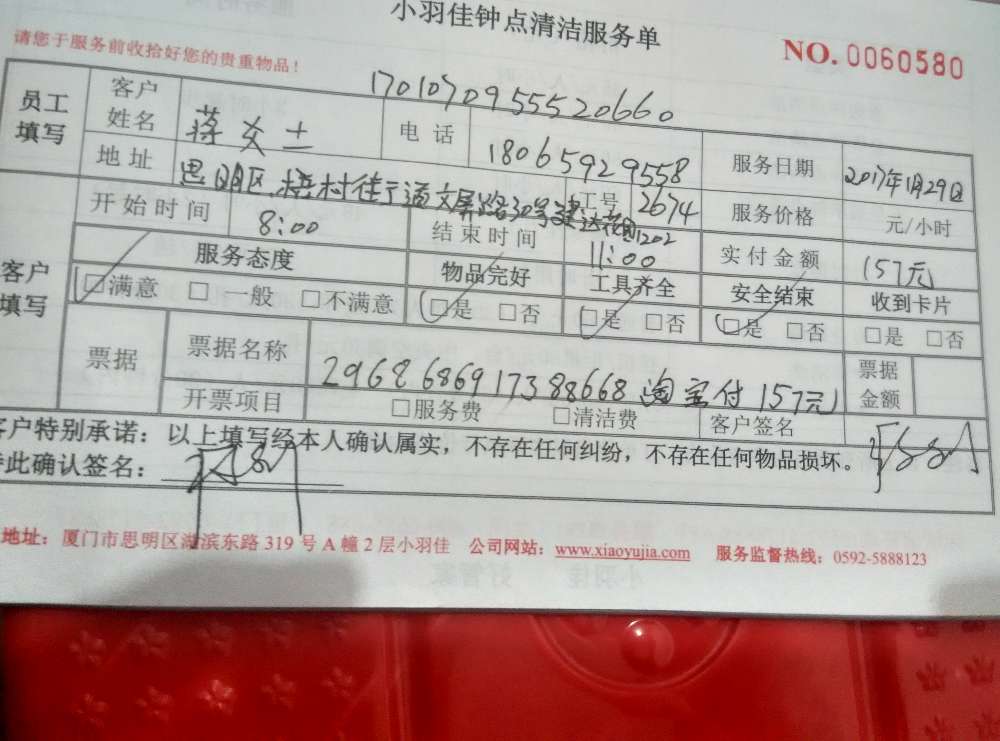 小羽佳钟点清洁服务单
请您于服务前收拾好您的贵重物品！ NO.0060580
170107095552066​0
员工填写 客户姓名 蒋女士 电话 18065929558 服务日期 2017年1月29日
地址 思明区梧村街道文屏路30号建达花园1202 工号 2674 服务价格 元/小时
客户填写 开始时间 8:00 结束时间 11:00 实付金额 157元
服务态度 物品完好 工具齐全 安全结束 收到卡片
□满意 □一般 □不满意 □是 □否 □是 □否 □是 □否 □是 □否
票据 票据名称 29686869173​88668 淘宝付157元 票据金额
开票项目 □服务费 □清洁费 客户签名
客户特别承诺：以上填写经本人确认属实，不存在任何纠纷，不存在任何物品损坏。
特此确认签名：
地址：厦门市思明区湖滨东路319号A幢2层小羽佳 公司网站：www.xiaoyujia.com 服务监督热线：0592-5888123